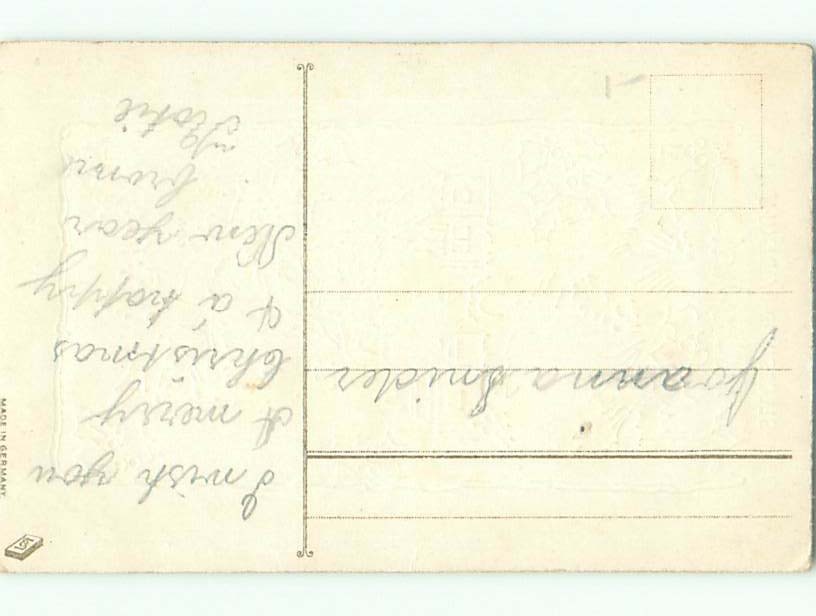 I wish you
A merry
Christmas
& a happy
New year
from
Katie
Joanna Snider
MADE IN GERMANY.